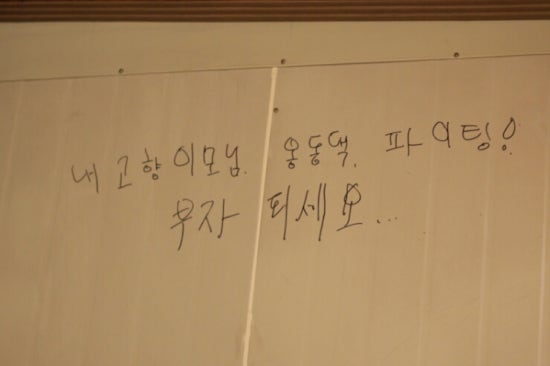 내고향이모님. 옹동댁. 파이팅!
부자 되세요...